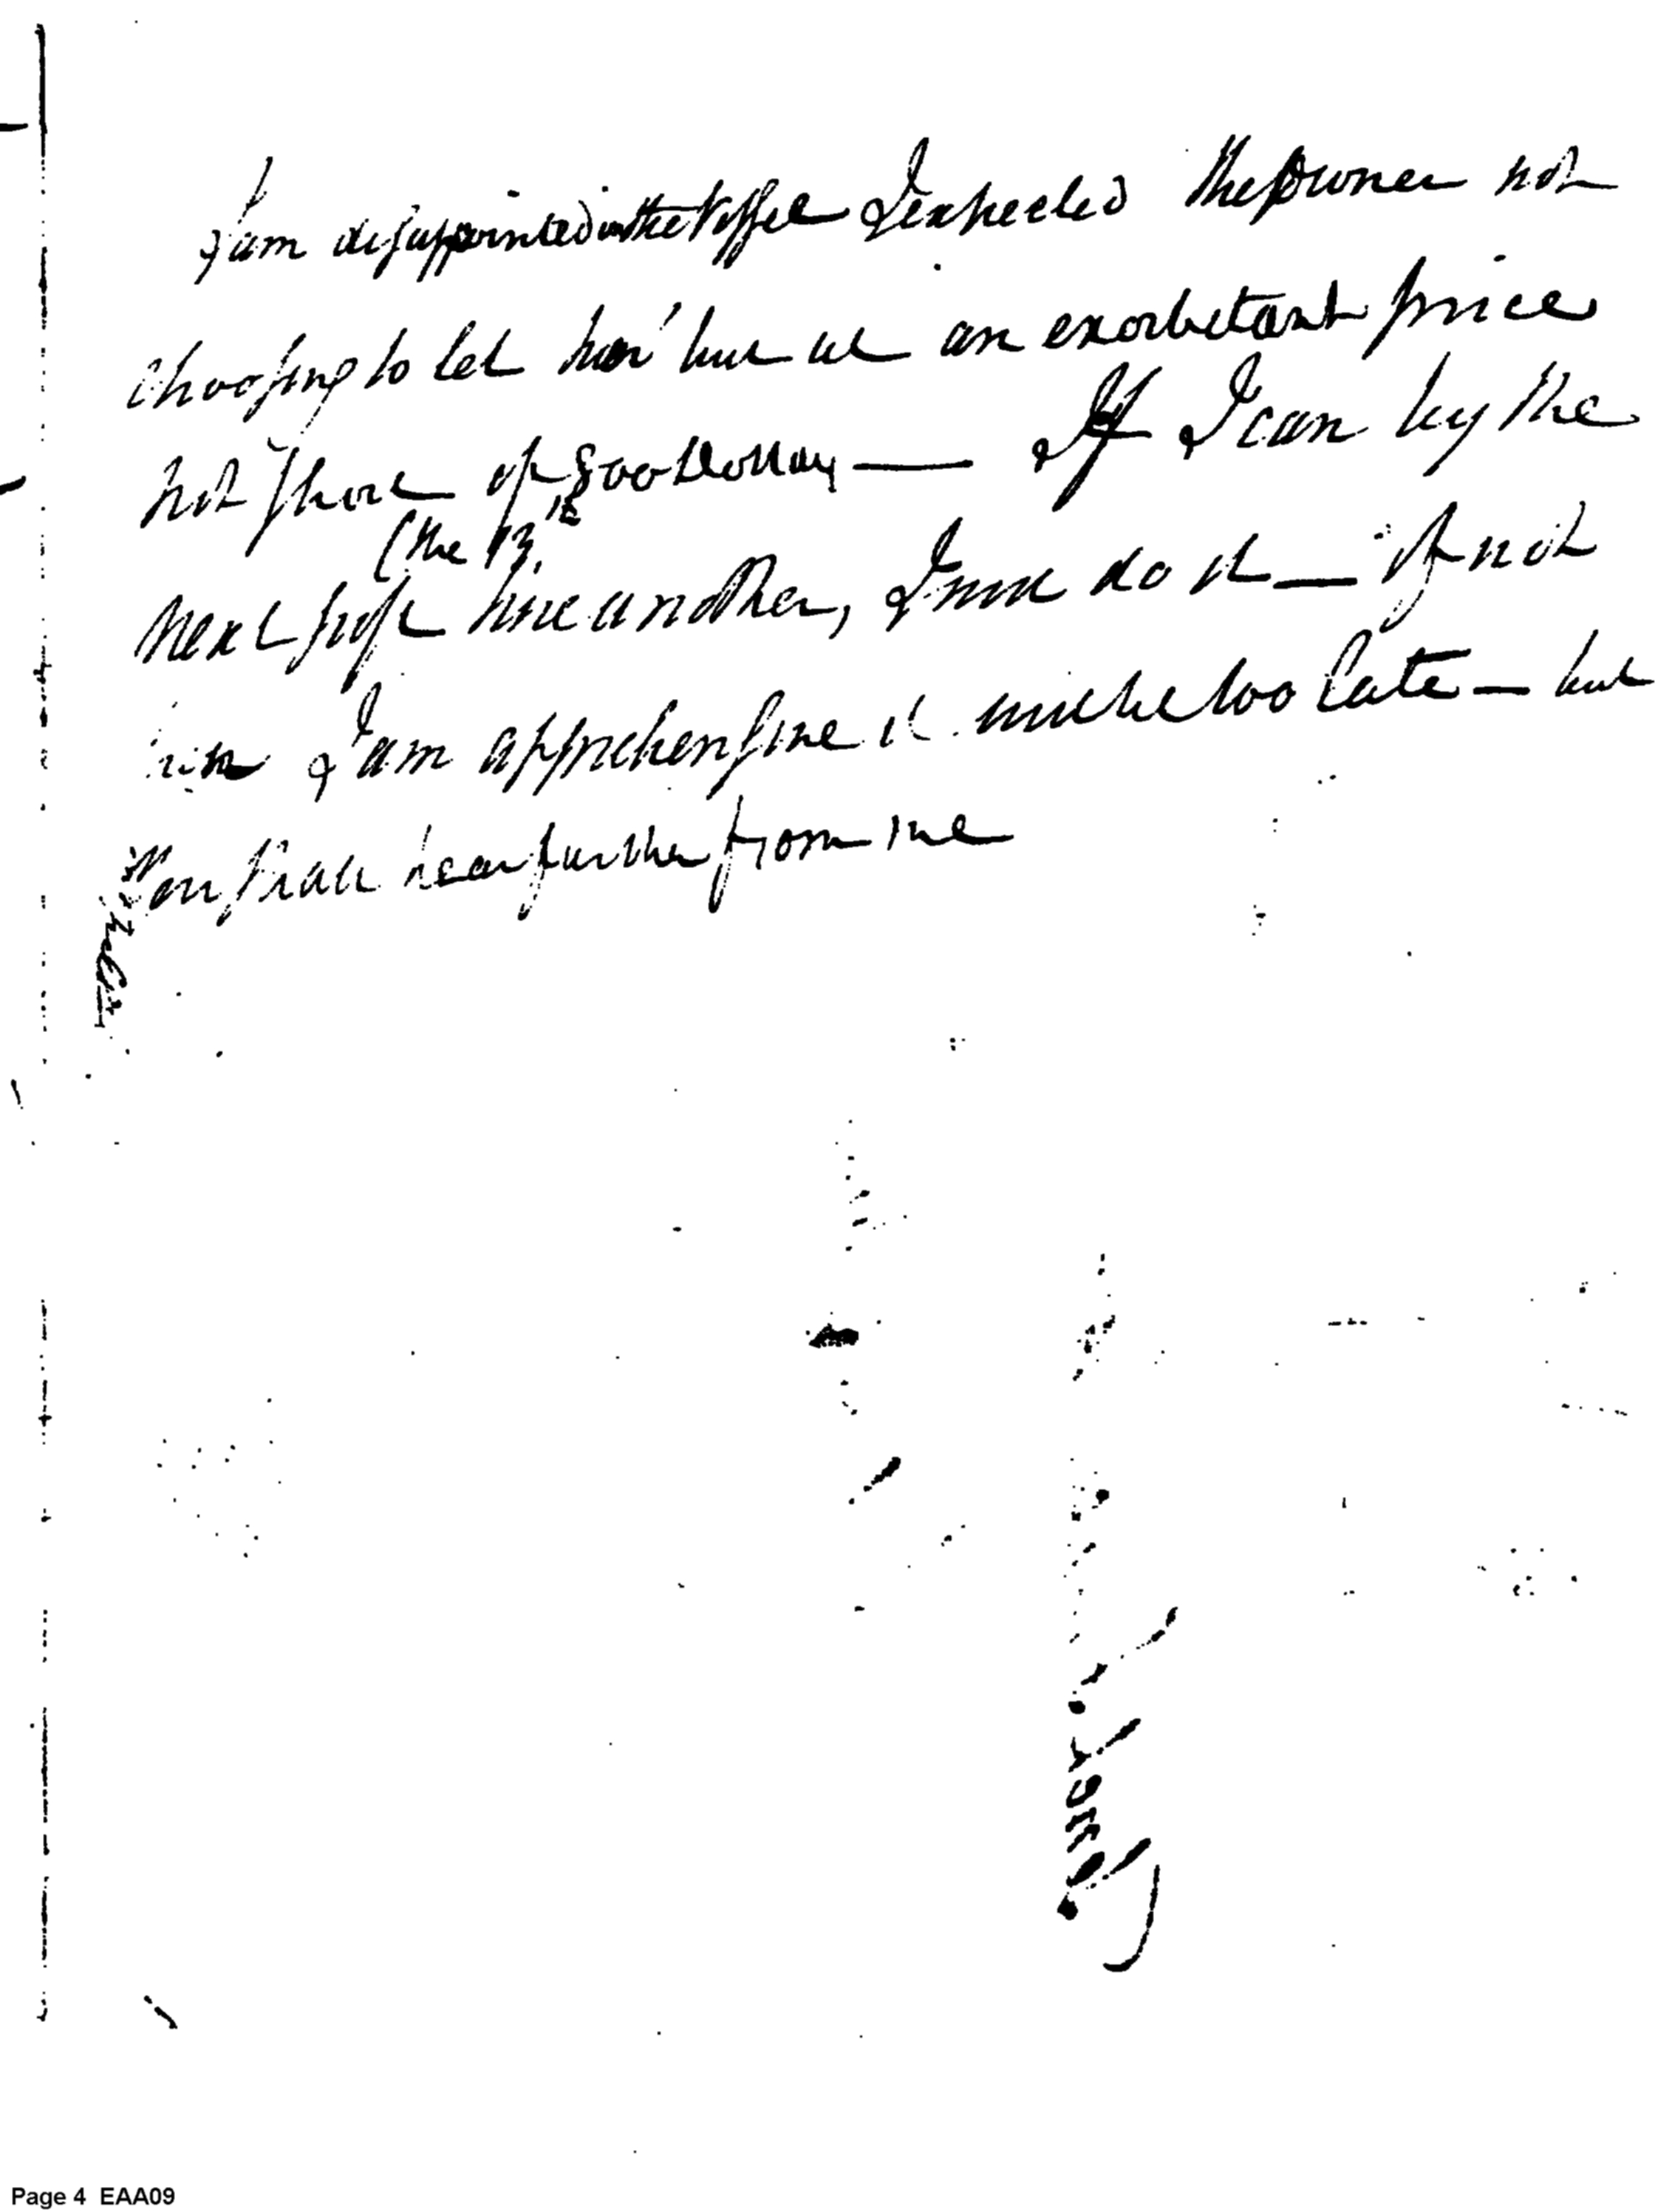 I am disappointed in the Vessel I expected the Owner not
choosing to let him but at an exorbitant price
not short of 800 Dollars — If I can by the
(the 13th
next post hire another, I will do it — if not
I am apprehensive it will be too late — but
you shall hear further from me
Page 4 EAA09